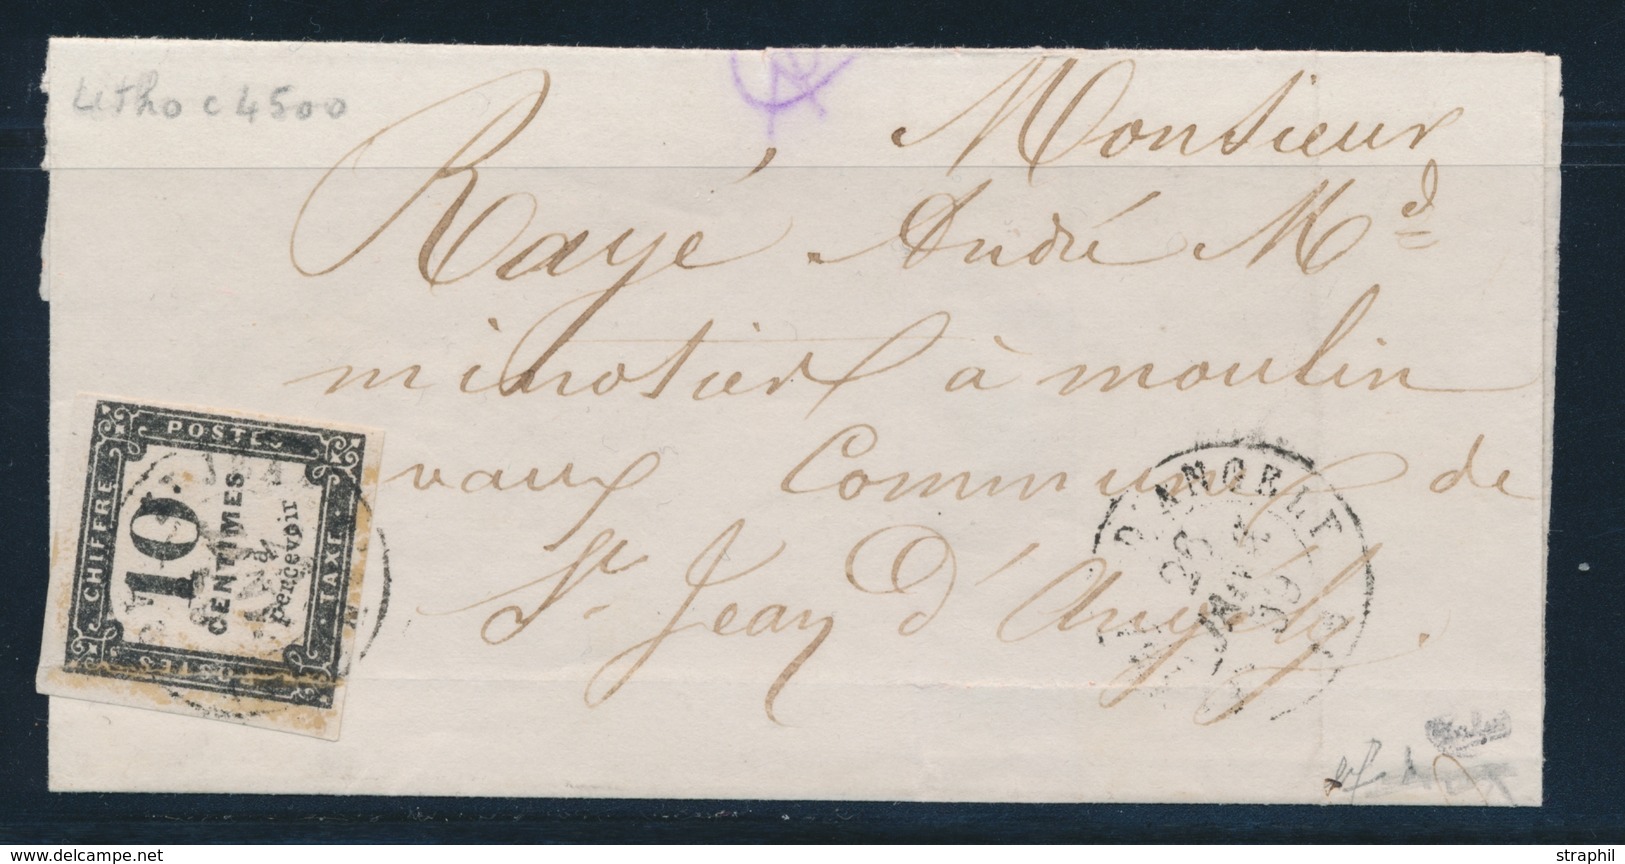 Litho c 4500
Monsieur
Rayé André Md
minotier à moulin
vaux Commune de
St Jean d'Angély.
POSTES
CHIFFRE
10.
CENTIMES
à
percevoir
TAXE
POSTES
D'ANGELY
JANV
59
delcampe.net
straphil